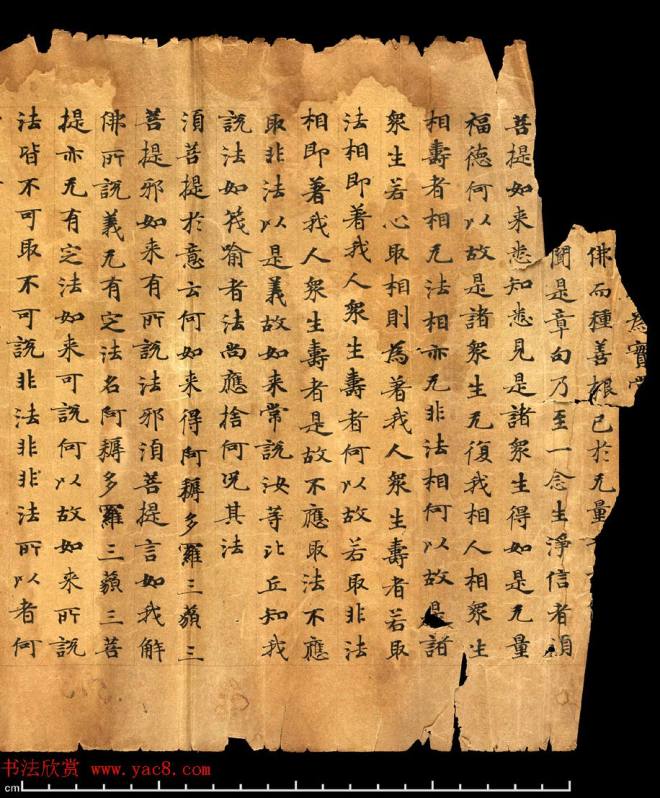 為實
佛而種善根已於无量
聞是章句乃至一念生淨信者須
菩提如来悉知悉見是諸衆生得如是无量
福德何以故是諸衆生无復我相人相衆生
相壽者相无法相亦无非法相何以故是諸
衆生若心取相則為著我人衆生壽者若取
法相即著我人衆生壽者何以故若取非法
相即著我人衆生壽者是故不應取法不應
取非法以是義故如来常說汝等比丘知我
說法如筏喻者法尚應捨何况其法
須菩提於意云何如来得阿耨多羅三藐三
菩提邪如来有所說法邪須菩提言如我解
佛所說義无有定法名阿耨多羅三藐三菩
提亦无有定法如来可說何以故如来所說
法皆不可取不可說非法非非法所以者何
书法欣赏 www.yac8.com
cm